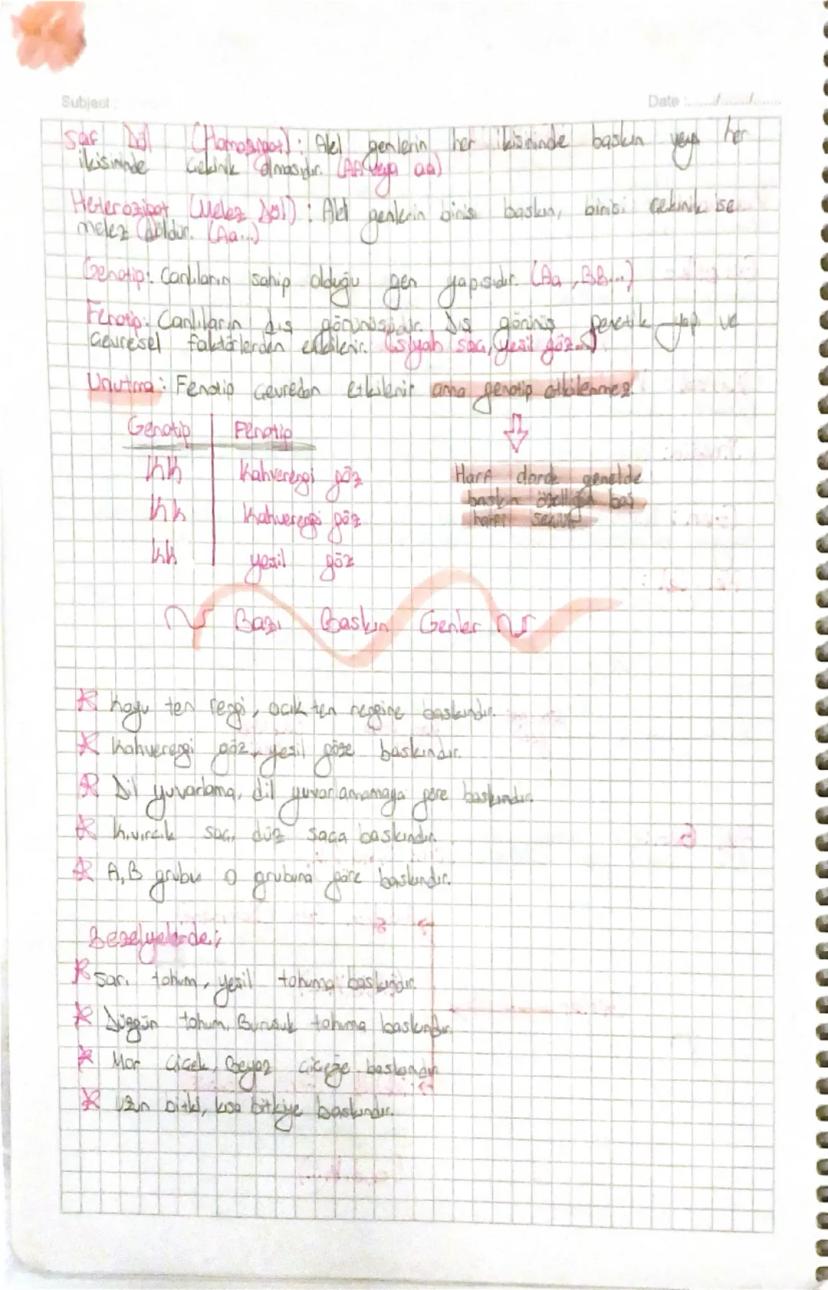 Subject:
Date :....../....../......
Saf Döl (Homozigot): Alel genlerin her ikisininde baskın veya her
ikisininde çekinik olmasıdır. (AA veya aa)
Heterozigot (Melez Döl): Alel genlerin birisi baskın, birisi çekinik ise
melez döldür. (Aa...)
Genotip: Canlıların sahip olduğu gen yapısıdır. (Aa, BB...)
Fenotip: Canlıların dış görünüşüdür. Dış görünüş genetik yapı ve
çevresel faktörlerden etkilenir. (siyah saç, yeşil göz...)
Unutma: Fenotip çevreden etkilenir ama genotip etkilenmez.
Genotip Fenotip
KK Kahverengi göz
Kk Kahverengi göz
kk yeşil göz
Harf genelde
baskın özelliğin baş
harfi
Bazı Baskın Genler
Koyu ten rengi, açık ten rengine baskındır.
Kahverengi göz, yeşil göze baskındır.
Dil yuvarlama, dil yuvarlamamaya göre baskındır.
Kıvırcık saç, düz saça baskındır.
A,B grubu 0 grubuna göre baskındır.
Bezelyelerde;
Sarı tohum, yeşil tohuma baskındır.
Düzgün tohum, Buruşuk tohuma baskındır.
Mor çiçek, Beyaz çiçeğe baskındır.
Uzun bitki, kısa bitkiye baskındır.